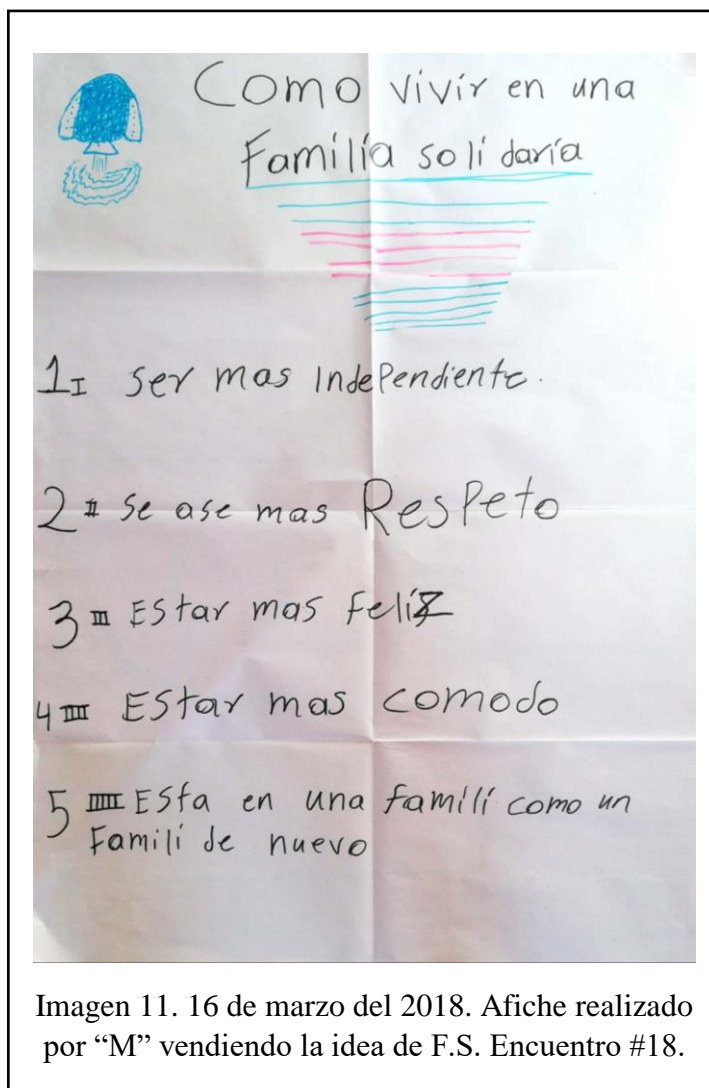 Como vivir en una
Familia solidaria
1 I Ser mas Independiente.
2 II Se ase mas Respeto
3 III Estar mas feliz
4 IIII Estar más comodo
5 IIIII Esta en una famili como un
Famili de nuevo
Imagen 11. 16 de marzo del 2018. Afiche realizado
por “M” vendiendo la idea de F.S. Encuentro #18.